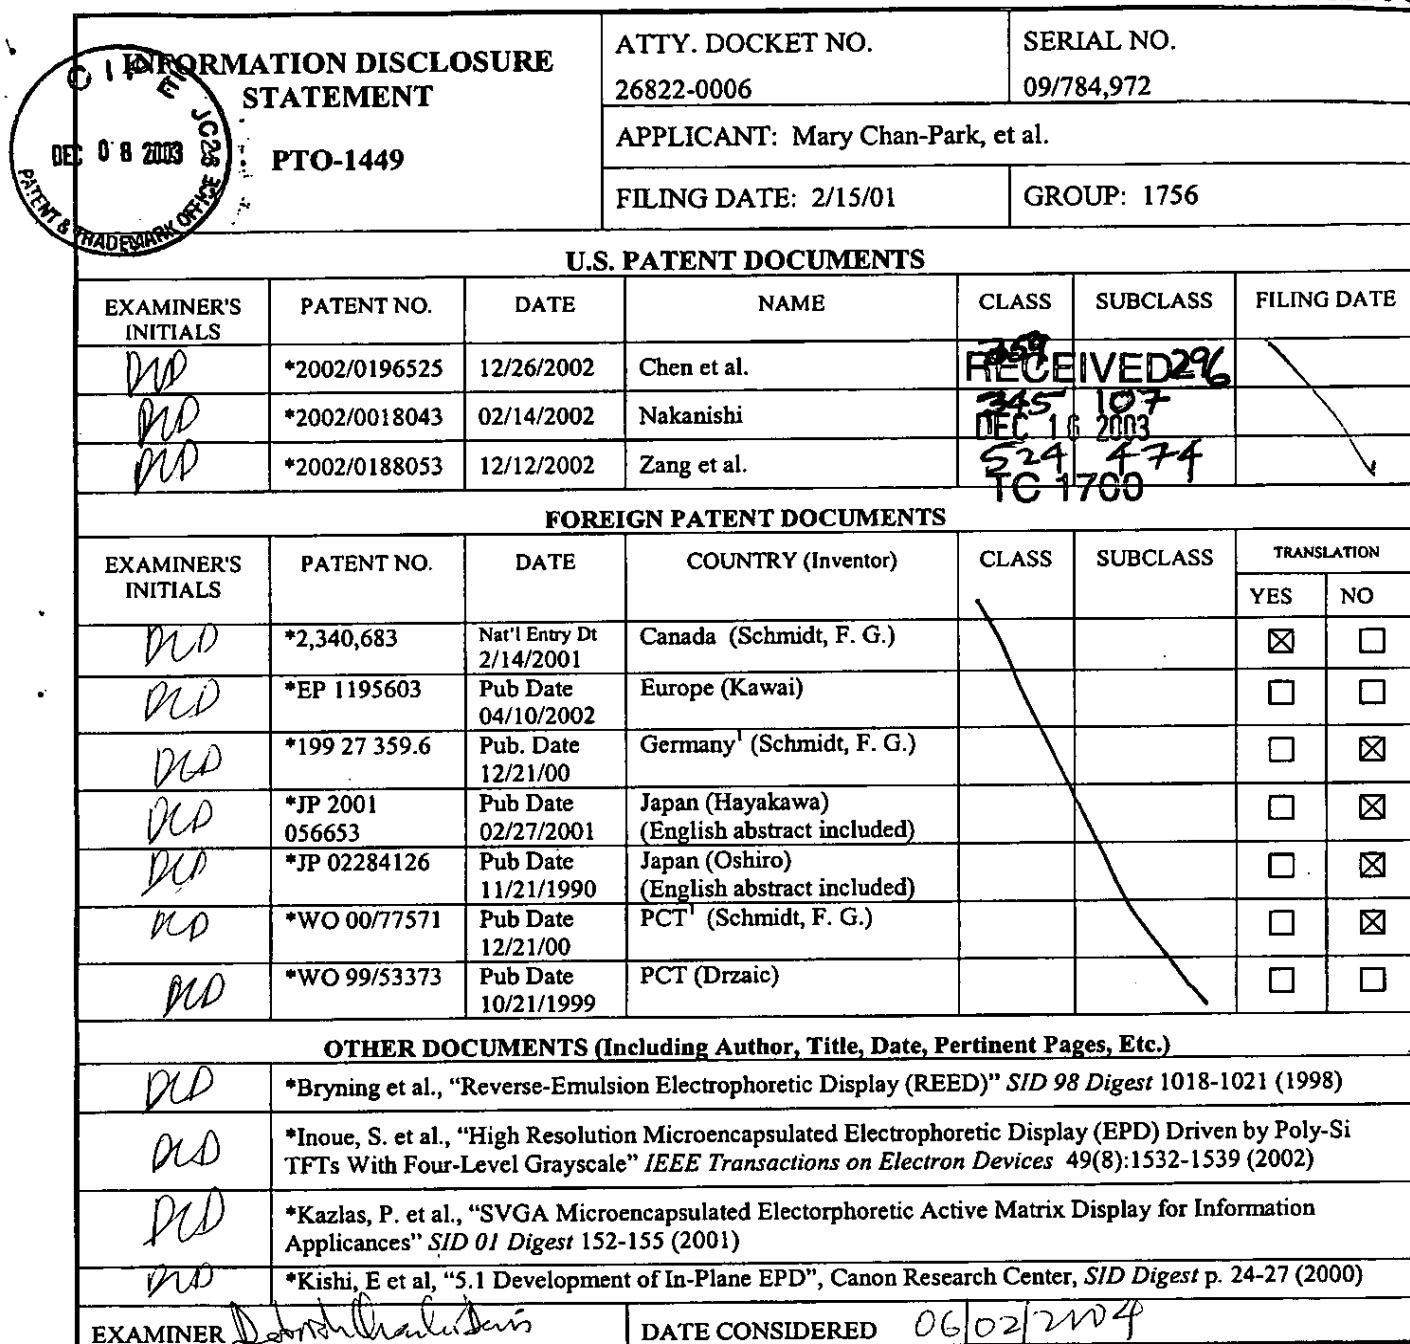 INFORMATION DISCLOSURE
STATEMENT
PTO-1449
OIPE JC28
DEC 08 2003
PATENT & TRADEMARK OFFICE
ATTY. DOCKET NO.
26822-0006
SERIAL NO.
09/784,972
APPLICANT: Mary Chan-Park, et al.
FILING DATE: 2/15/01
GROUP: 1756
U.S. PATENT DOCUMENTS
EXAMINER'S INITIALS PATENT NO. DATE NAME CLASS SUBCLASS FILING DATE
DCD *2002/0196525 12/26/2002 Chen et al. 359 296
DCD *2002/0018043 02/14/2002 Nakanishi 345 107
DCD *2002/0188053 12/12/2002 Zang et al. 524 474
RECEIVED
DEC 16 2003
TC 1700
FOREIGN PATENT DOCUMENTS
EXAMINER'S INITIALS PATENT NO. DATE COUNTRY (Inventor) CLASS SUBCLASS TRANSLATION
YES NO
DCD *2,340,683 Nat'l Entry Dt 2/14/2001 Canada (Schmidt, F. G.) ☒ ☐
DCD *EP 1195603 Pub Date 04/10/2002 Europe (Kawai) ☐ ☐
DCD *199 27 359.6 Pub. Date 12/21/00 Germany¹ (Schmidt, F. G.) ☐ ☒
DCD *JP 2001 056653 Pub Date 02/27/2001 Japan (Hayakawa) (English abstract included) ☐ ☒
DCD *JP 02284126 Pub Date 11/21/1990 Japan (Oshiro) (English abstract included) ☐ ☒
DCD *WO 00/77571 Pub Date 12/21/00 PCT¹ (Schmidt, F. G.) ☐ ☒
DCD *WO 99/53373 Pub Date 10/21/1999 PCT (Drzaic) ☐ ☐
OTHER DOCUMENTS (Including Author, Title, Date, Pertinent Pages, Etc.)
DCD *Bryning et al., “Reverse-Emulsion Electrophoretic Display (REED)” SID 98 Digest 1018-1021 (1998)
DCD *Inoue, S. et al., “High Resolution Microencapsulated Electrophoretic Display (EPD) Driven by Poly-Si
TFTs With Four-Level Grayscale” IEEE Transactions on Electron Devices 49(8):1532-1539 (2002)
DCD *Kazlas, P. et al., “SVGA Microencapsulated Electorphoretic Active Matrix Display for Information
Applicances” SID 01 Digest 152-155 (2001)
DCD *Kishi, E et al, “5.1 Development of In-Plane EPD”, Canon Research Center, SID Digest p. 24-27 (2000)
EXAMINER DATE CONSIDERED 06/02/2004